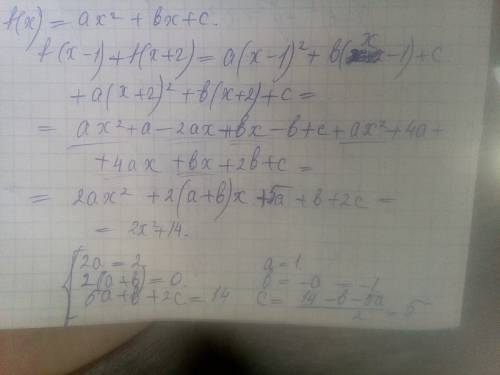 f(x) = ax² + bx + c.
f(x-1) + f(x+2) = a(x-1)² + b(x-1) + c
+ a(x+2)² + b(x+2) + c =
= ax² + a - 2ax + bx - b + c + ax² + 4a +
+ 4ax + bx + 2b + c =
= 2ax² + 2(a+b)x + 5a + b + 2c =
= 2x² + 14.
2a = 2 a = 1.
2(a+b) = 0. b = -a = -1
5a + b + 2c = 14 c = (14 - b - 5a)/2 = 5